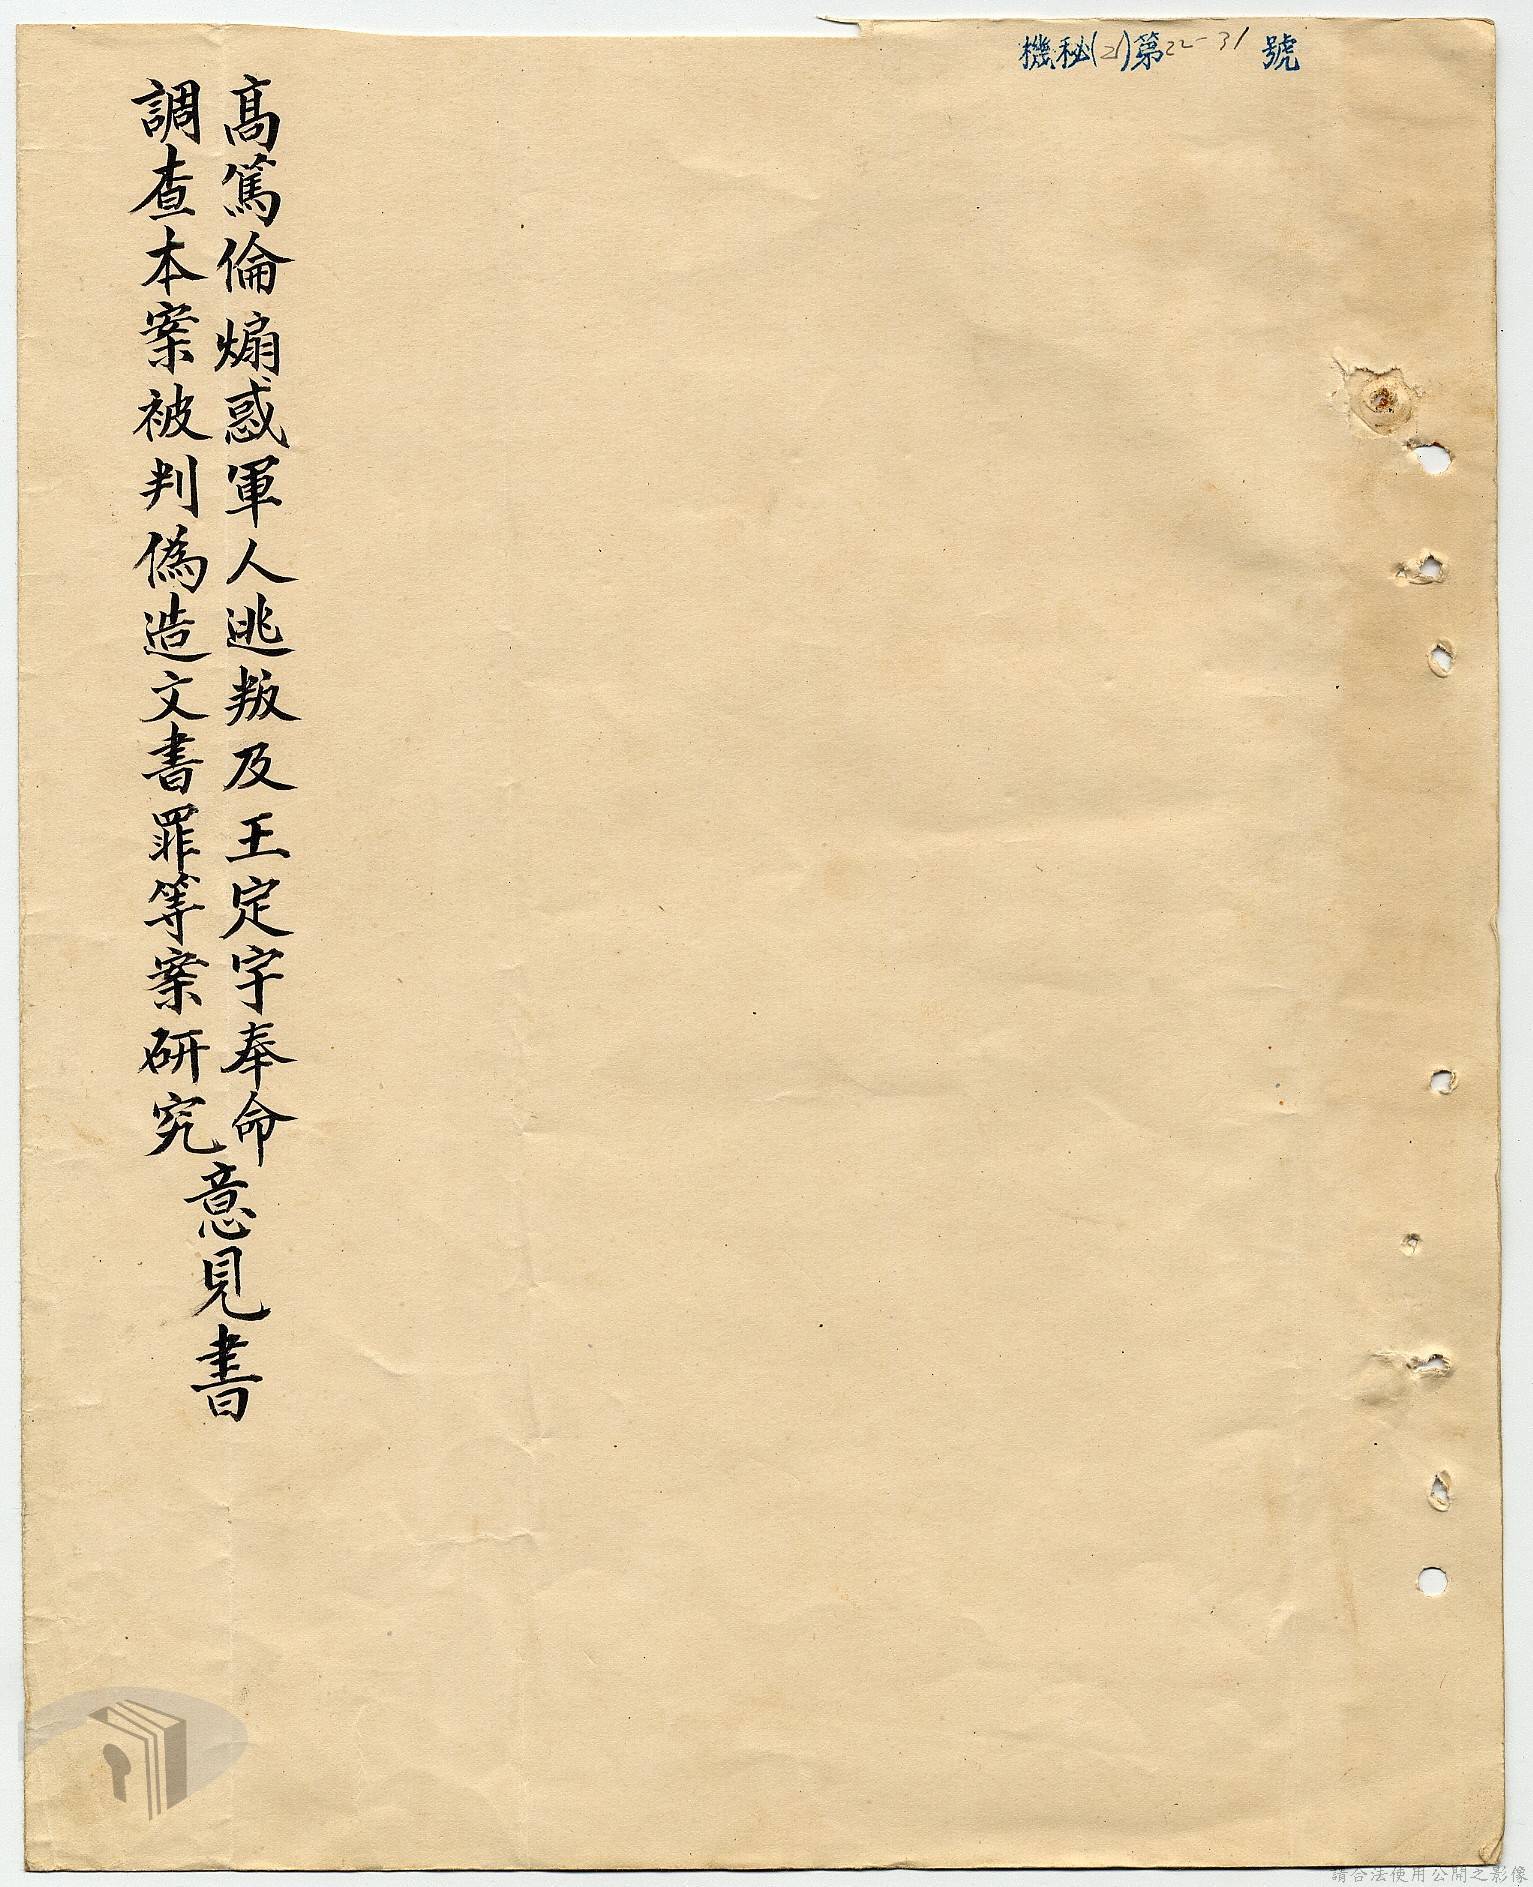 機秘(21)第22-31號
高篤倫煽惑軍人逃叛及王定宇奉命
調查本案被判偽造文書罪等案研究
意見書
請合法使用公開之影像